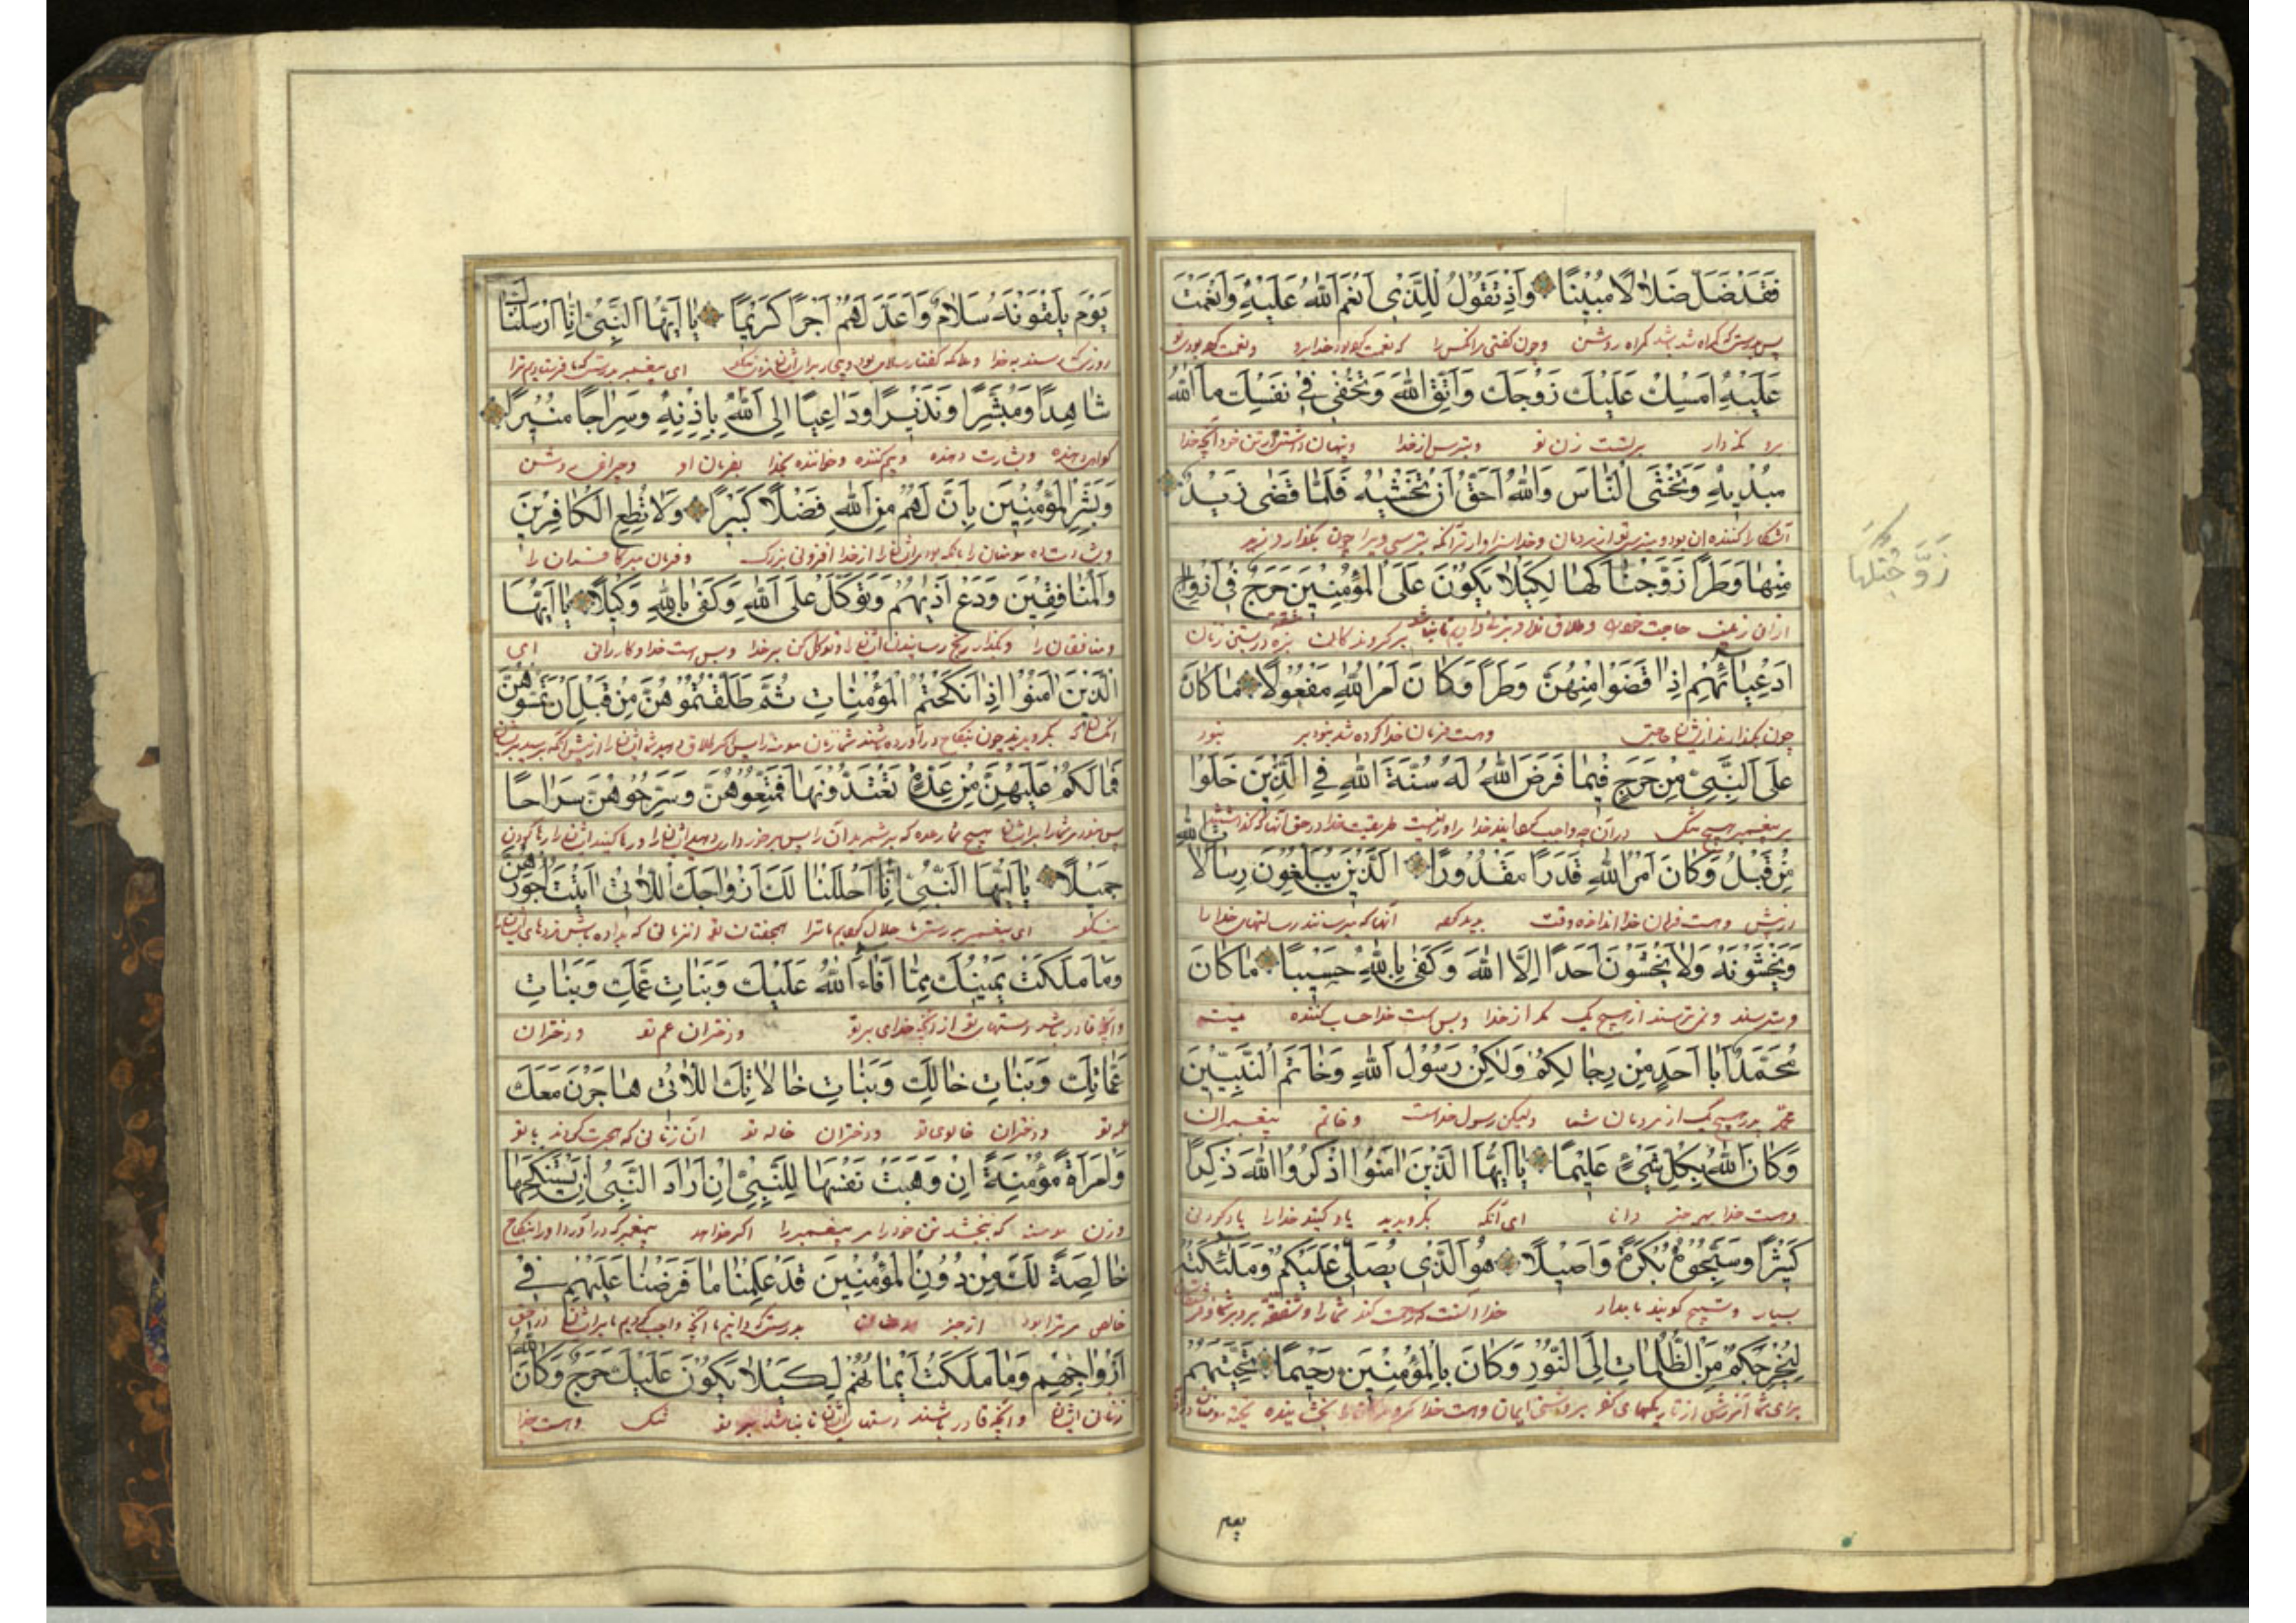 فَقَدْ ضَلَّ ضَلَالًا مُبِينًا وَاِذْ تَقُولُ لِلَّذِي اَنْعَمَ اللّٰهُ عَلَيْهِ وَاَنْعَمْتَ
پس بدرستی که گمراه شد گمراه روشن وچون گفتی مر آنکس را که نعمت خدا برو ونعمت تو
عَلَيْهِ اَمْسِكْ عَلَيْكَ زَوْجَكَ وَاتَّقِ اللّٰهَ وَتُخْفِي فِي نَفْسِكَ مَا اللّٰهُ
برو نگه دار زن تو وبترس از خدا وپنهان خود آنچه خدا
مُبْدِيهِ وَتَخْشَى النَّاسَ وَاللّٰهُ اَحَقُّ اَنْ تَخْشٰيهُ فَلَمَّا قَضٰى زَيْدٌ
آشکارا کننده از مردمان وخدا سزاوارتر آنکه بترسی ویرا چون بگذارد زید
زَوَّجْنٰكَهَا
مِنْهَا وَطَرًا زَوَّجْنَاكَهَا لِكَيْلَا يَكُونَ عَلَى الْمُؤْمِنِينَ حَرَجٌ فِي اَزْوَاجِ
از آن زن حاجت خود وطلاق بر گروندگان بزه زنان
اَدْعِيَائِهِمْ اِذَا قَضَوْا مِنْهُنَّ وَطَرًا وَكَانَ اَمْرُ اللّٰهِ مَفْعُولًا مَا كَانَ
چون بگذارند از ایشان حاجتی وهست فرمان خدا کرده شد نبود
عَلَى النَّبِيِّ مِنْ حَرَجٍ فِيمَا فَرَضَ اللّٰهُ لَهُ سُنَّةَ اللّٰهِ فِي الَّذِينَ خَلَوْا
بر پیغمبر هیچ تنگ در آن چه واجب خدا طریقت خدا در حق آنها که گذشتند
مِنْ قَبْلُ وَكَانَ اَمْرُ اللّٰهِ قَدَرًا مَقْدُورًا الَّذِينَ يُبَلِّغُونَ رِسَالَاتِ اللّٰهِ
از پیش وهست فرمان خدا اندازه وقت آنها که میرسانند رسالتهای خدا را
وَيَخْشَوْنَهُ وَلَا يَخْشَوْنَ اَحَدًا اِلَّا اللّٰهَ وَكَفٰى بِاللّٰهِ حَسِيبًا مَا كَانَ
ومیترسند ونمی ترسند از هیچ یک مگر از خدا وبس است خدا حساب کننده نیست
مُحَمَّدٌ اَبَا اَحَدٍ مِنْ رِجَالِكُمْ وَلٰكِنْ رَسُولَ اللّٰهِ وَخَاتَمَ النَّبِيِّينَ
محمد پدر هیچ یک از مردمان شما ولیکن رسول خداست وخاتم پیغمبران
وَكَانَ اللّٰهُ بِكُلِّ شَيْءٍ عَلِيمًا يَا اَيُّهَا الَّذِينَ اٰمَنُوا اذْكُرُوا اللّٰهَ ذِكْرًا
وهست خدا بهر چیز دانا ای آنکه بگرویدید یاد کنید خدا را یاد کردنی
كَثِيرًا وَسَبِّحُوهُ بُكْرَةً وَاَصِيلًا هُوَ الَّذِي يُصَلِّي عَلَيْكُمْ وَمَلٰئِكَتُهُ
بسیار وتسبیح گویید بامداد خدا آنست که
لِيُخْرِجَكُمْ مِنَ الظُّلُمَاتِ اِلَى النُّورِ وَكَانَ بِالْمُؤْمِنِينَ رَحِيمًا تَحِيَّتُهُمْ
از تاریکیهای کفر بروشنی ایمان وهست خدا بخشاینده
يوم
يَوْمَ يَلْقَوْنَهُ سَلَامٌ وَاَعَدَّ لَهُمْ اَجْرًا كَرِيمًا يَا اَيُّهَا النَّبِيُّ اِنَّا اَرْسَلْنَاكَ
ای پیغمبر بدرستی که ما فرستادیم ترا
شَاهِدًا وَمُبَشِّرًا وَنَذِيرًا وَدَاعِيًا اِلَى اللّٰهِ بِاِذْنِهِ وَسِرَاجًا مُنِيرًا
گواهی دهنده وبشارت دهنده وبیم کننده وخواننده بخدا بفرمان او وچراغی روشن
وَبَشِّرِ الْمُؤْمِنِينَ بِاَنَّ لَهُمْ مِنَ اللّٰهِ فَضْلًا كَبِيرًا وَلَا تُطِعِ الْكَافِرِينَ
وبشارت ده مومنان را از خدا افزونی بزرگ وفرمان مبر کافران را
وَالْمُنَافِقِينَ وَدَعْ اَذٰيهُمْ وَتَوَكَّلْ عَلَى اللّٰهِ وَكَفٰى بِاللّٰهِ وَكِيلًا يَا اَيُّهَا
ومنافقان را وبگذار رنج رسانیدن ایشان را وتوکل کن بر خدا وبس است خدا کارران ای
الَّذِينَ اٰمَنُوا اِذَا نَكَحْتُمُ الْمُؤْمِنَاتِ ثُمَّ طَلَّقْتُمُوهُنَّ مِنْ قَبْلِ اَنْ تَمَسُّوهُنَّ
بگرویدید چون بنکاح در آورده شما زنان مومنه را پس طلاق دهید ایشان را از پیش آنکه
فَمَا لَكُمْ عَلَيْهِنَّ مِنْ عِدَّةٍ تَعْتَدُّونَهَا فَمَتِّعُوهُنَّ وَسَرِّحُوهُنَّ سَرَاحًا
پس نبود مر شما را بر ایشان هیچ عده که بر شمرید آن را پس برخورداری دهید ایشان را ورها کنید ایشان را رها کردن
جَمِيلًا يَا اَيُّهَا النَّبِيُّ اِنَّا اَحْلَلْنَا لَكَ اَزْوَاجَكَ اللَّاتِي اٰتَيْتَ اُجُورَهُنَّ
نیکو ای پیغمبر بدرستی ما حلال کردیم ما ترا جفتان تو
وَمَا مَلَكَتْ يَمِينُكَ مِمَّا اَفَاءَ اللّٰهُ عَلَيْكَ وَبَنَاتِ عَمِّكَ وَبَنَاتِ
وآنچه قادر باشد دستهای تو از آنچه خدای بر تو ودختران عم تو ودختران
عَمَّاتِكَ وَبَنَاتِ خَالِكَ وَبَنَاتِ خَالَاتِكَ اللَّاتِي هَاجَرْنَ مَعَكَ
عمه تو ودختران خالوی تو ودختران خاله تو آن زنانی که هجرت کردند با تو
وَامْرَاَةً مُؤْمِنَةً اِنْ وَهَبَتْ نَفْسَهَا لِلنَّبِيِّ اِنْ اَرَادَ النَّبِيُّ اَنْ يَسْتَنْكِحَهَا
وزن مومنه که ببخشد تن خود را مر پیغمبر را اگر خواهد پیغمبر که در آورد او را بنکاح
خَالِصَةً لَكَ مِنْ دُونِ الْمُؤْمِنِينَ قَدْ عَلِمْنَا مَا فَرَضْنَا عَلَيْهِمْ فِي
خالص مر ترا بود از جز مومنان بدرستی که دانیم ما آنچه واجب کردیم ما بر ایشان در حق
اَزْوَاجِهِمْ وَمَا مَلَكَتْ اَيْمَانُهُمْ لِكَيْلَا يَكُونَ عَلَيْكَ حَرَجٌ وَكَانَ اللّٰهُ
زنان ایشان وآنچه قادر باشند دستهای ایشان تا نباشد بر تو تنگ وهست خدا